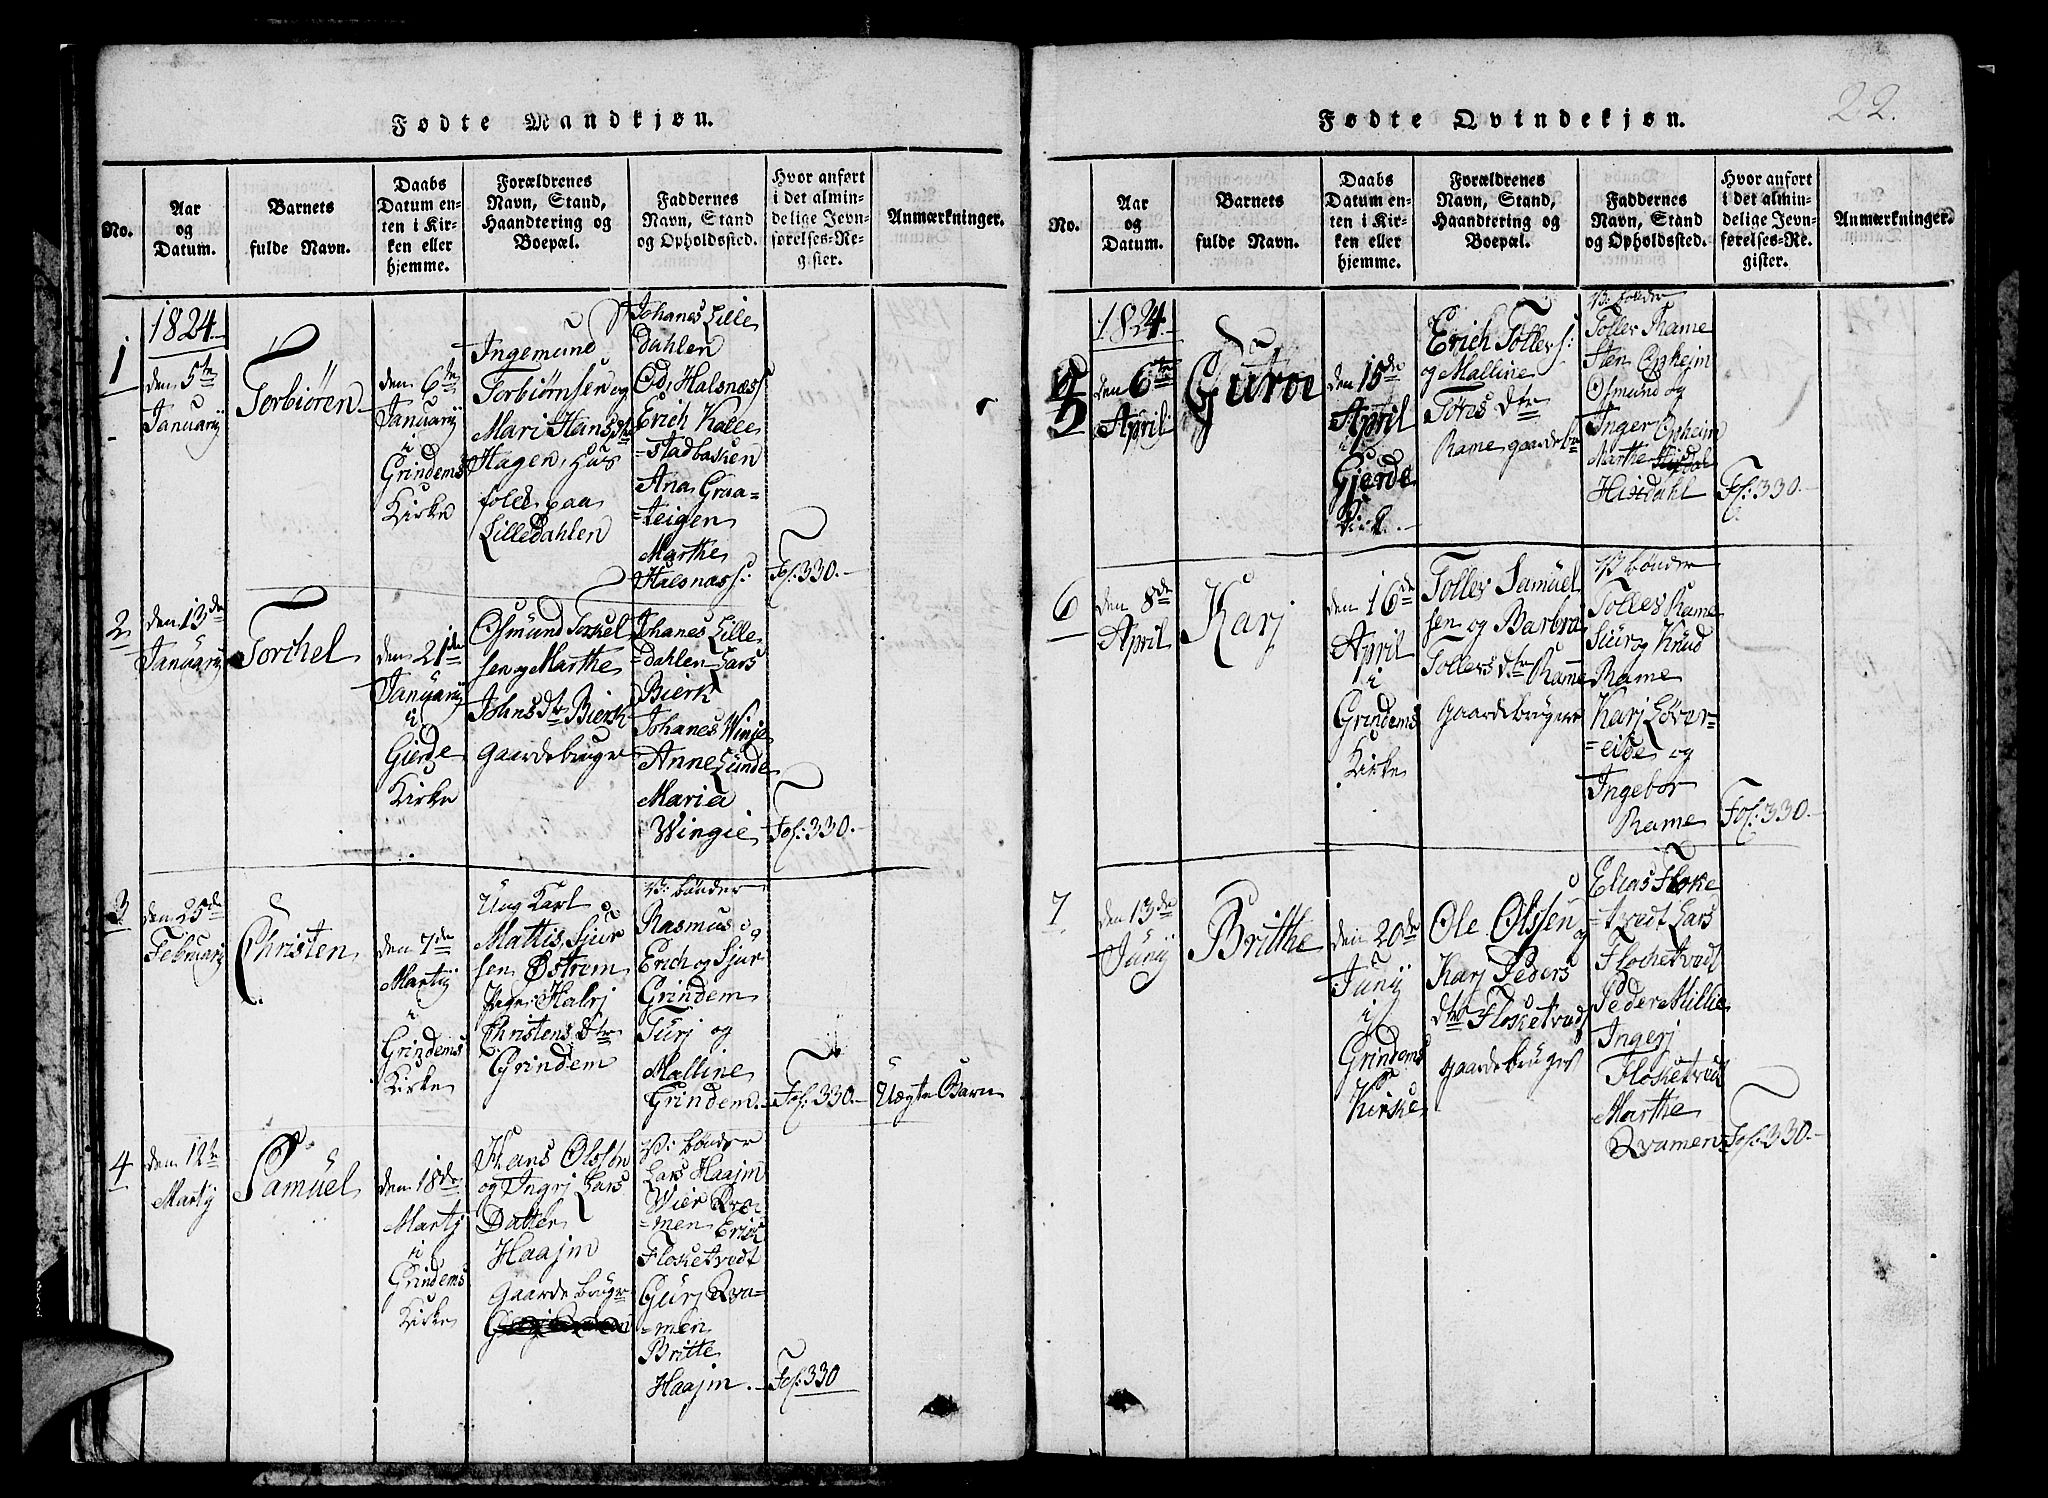 Fødte Mandkjøn.
No.
Aar
og
Datum.
Barnets
fulde Navn.
Daabs
Datum en-
ten i Kir-
ken eller
hjemme.
Forældrenes
Navn, Stand,
Haandtering og
Boepæl.
Faddernes
Navn, Stand
og Opholdssted.
Hvor anført
i det almin-
delige Jevn-
førelses-Re-
gister.
Anmærkninger.
1
1824
den 5te
Januarij
Torbiören
den 6te
Januarij
i
Grindems
Kirke
Ingemund
Torbiørnsen og
Mari Hans
Hagen, Huus
folk paa
Lilledahlen
Johanes Lille
dahlen
Od, Halsnæss
Erich Kalle
=stadbaken
Ana Graa-
=teigen
Marthe
Halsnæss:
Fol: 330.-
2
den 13de
Januarij
Torchel
den 21de
Januarij
i
Gierde
Kirke
Osmund Torkel
sen og Marthe
Johns dtr Bierk
gaardebruger
Johanes Lille
=dahlen Lars
Bierk
Johanes Winje
Anne Lunde
Maria
Wingie
Fol: 330.-
3
den 25de
Februarij
Christen
den 7de
Martij
i
Grindems
Kirke
Ung Karl
Mattis Sjur
sen Østrem
Pige Halvj
Christens Dtr
Grindem
V: bönder
Rasmus
Erich og Sjur
Grindem
Turj og
Malline
Grindem.
Fol: 330.-
Uægte Barn
4
den 12te
Martij
Samüel
den 18de
Martij
i
Grindems
Kirke
Hans Olssön
og Ingrj Lars
Datter
Haajm
Gaardebruger
V: bönder
Lars Haajm
Wier Qva-
=men Erick
Flosketvedt
Gurj Qva-
=men
Britte
Haajm.
Fol: 330
Fødte Qvindekjøn.
22.
No.
Aar
og
Datum.
Barnets
fulde Navn.
Daabs
Datum en-
ten i Kir-
ken eller
hjemme.
Forældrenes
Navn, Stand,
Haandtering og
Boepæl.
Faddernes
Navn, Stand
og Opholdssted.
Hvor anført
i det almin-
delige Jevn-
førelses-Re-
gister.
Anmærkninger.
5
1824
den 6te
April
Guroe
den 15de
April
i
Gjerde
Erich Tollers:
og Malline
Tøris dtr
Rame gaardebr
V: bönder
Toller Rame
Sten Opheim
Osmund og
Inger Opheim
Marthe
Hisdahl
Fol: 330.-
6
den 8de
April
Karj
den 16de
April
i
Grindems
Kirke
Toller Samüel
sen og Barbra
Tollers dtr Rame
Gaardebruger
V bönder
Tolles Rame
Siur og Knud
Rame
Karj Løver-
=eide og
Ingebor
Rame
Fol: 330.-
7
den 13de
Junij
Brithe
den 20de
Junij
i
Grindems
Kirke
Ole Olssen og
Karj Peders
dtr Flosketvedt
gaardebruger
Elias Floske
=tvedt Lars
Flosketvedt
Peder Millie
Ingerj
Flosketvedt
Marthe
Qvamen
Fol: 330.-